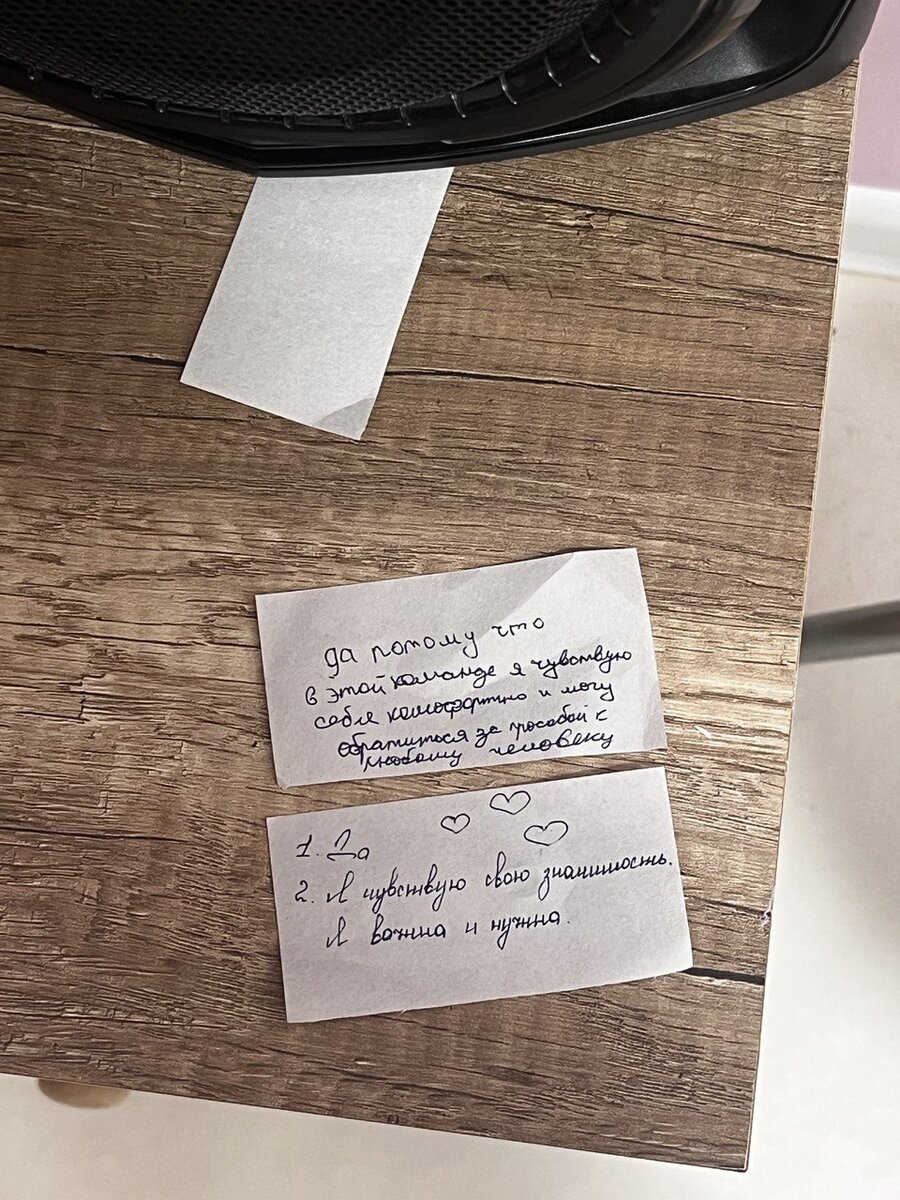 да потому что
в этой команде я чувствую
себя комфортно и могу
обратиться за пособой к
любому человеку
1. Да
2. Я чувствую свою значимость.
Я важна и нужна.